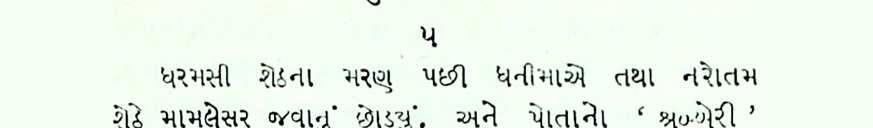 ૫
ધરમસી શેઠના મરણ પછી ધનીમાએ તથા નરોતમ
શેઠે મામલેસર જવાનું છોડ્યું. અને પોતાનો ‘ શ્રબ્બેરી ’